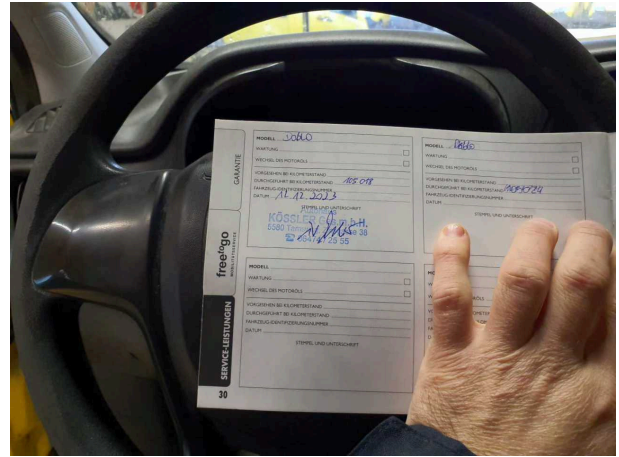 GARANTIE
freetogo
MOBILITÄTSSERVICE
SERVICE-LEISTUNGEN
30
MODELL Doblo
WARTUNG
WECHSEL DES MOTORÖLS
VORGESEHEN BEI KILOMETERSTAND
DURCHGEFÜHRT BEI KILOMETERSTAND 105 018
FAHRZEUG-IDENTIFIZIERUNGSNUMMER
DATUM 12.12.2023
STEMPEL UND UNTERSCHRIFT
KÖSSLER G.m.b.H.
5580
MODELL Doblo
WARTUNG
WECHSEL DES MOTORÖLS
VORGESEHEN BEI KILOMETERSTAND
DURCHGEFÜHRT BEI KILOMETERSTAND
FAHRZEUG-IDENTIFIZIERUNGSNUMMER
DATUM
STEMPEL UND UNTERSCHRIFT
MODELL
WARTUNG
WECHSEL DES MOTORÖLS
VORGESEHEN BEI KILOMETERSTAND
DURCHGEFÜHRT BEI KILOMETERSTAND
FAHRZEUG-IDENTIFIZIERUNGSNUMMER
DATUM
STEMPEL UND UNTERSCHRIFT